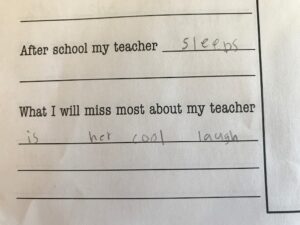 After school my teacher sleeps
What I will miss most about my teacher
is her cool laugh